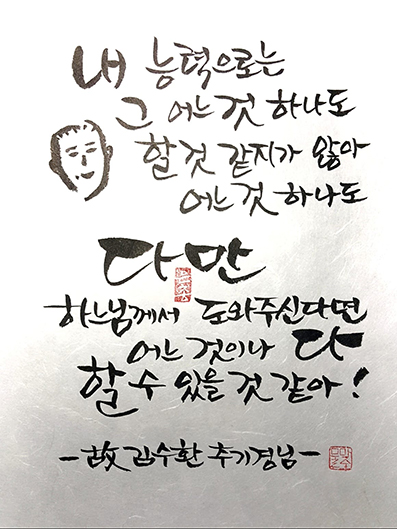 내 능력으로는
그 어느 것 하나도
할 것 같지가 않아
어느 것 하나도
다만
하느님께서 도와주신다면
어느 것이나 다
할 수 있을 것 같아!
-故 김수환 추기경님-